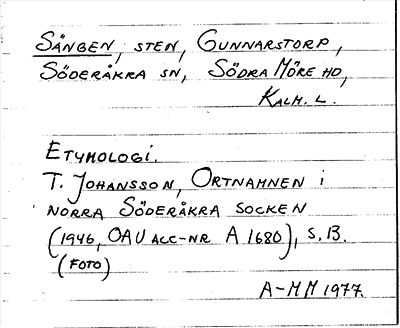 SÄNGEN, STEN, GUNNARSTORP,
SÖDERÅKRA SN, SÖDRA MÖRE HD,
KALM. L.
ETYMOLOGI.
T. JOHANSSON, ORTNAMNEN I
NORRA SÖDERÅKRA SOCKEN
(1946, OAU ACC-NR A 1680), S. 13.
(FOTO)
A-MM 1977.